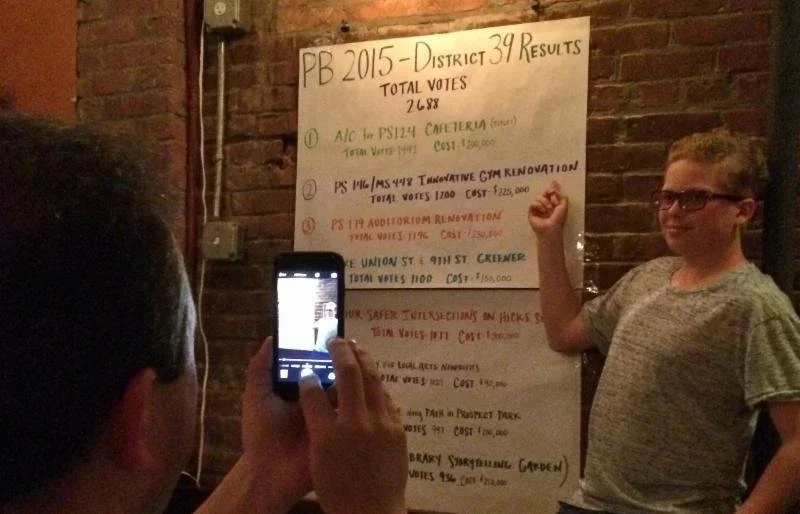 PB 2015 - DISTRICT 39 RESULTS
TOTAL VOTES
2688
① A/C for PS124 CAFETERIA
TOTAL VOTES COST: $200,000
② PS 146/MS 448 INNOVATIVE GYM RENOVATION
TOTAL VOTES 1200 COST: $225,000
③ PS 179 AUDITORIUM RENOVATION
TOTAL VOTES 1196 COST:
KE UNION ST. & 9TH ST GREENER
TOTAL VOTES 1100 COST: $150,000
OUR SAFER INTERSECTIONS ON HICKS
TOTAL VOTES 1077 COST: $300,000
FOR LOCAL ARTS NONPROFITS
VOTES COST
along PATH in PROSPECT PARK
VOTES COST
BRARY STORYTELLING GARDEN)
VOTES 936 COST: